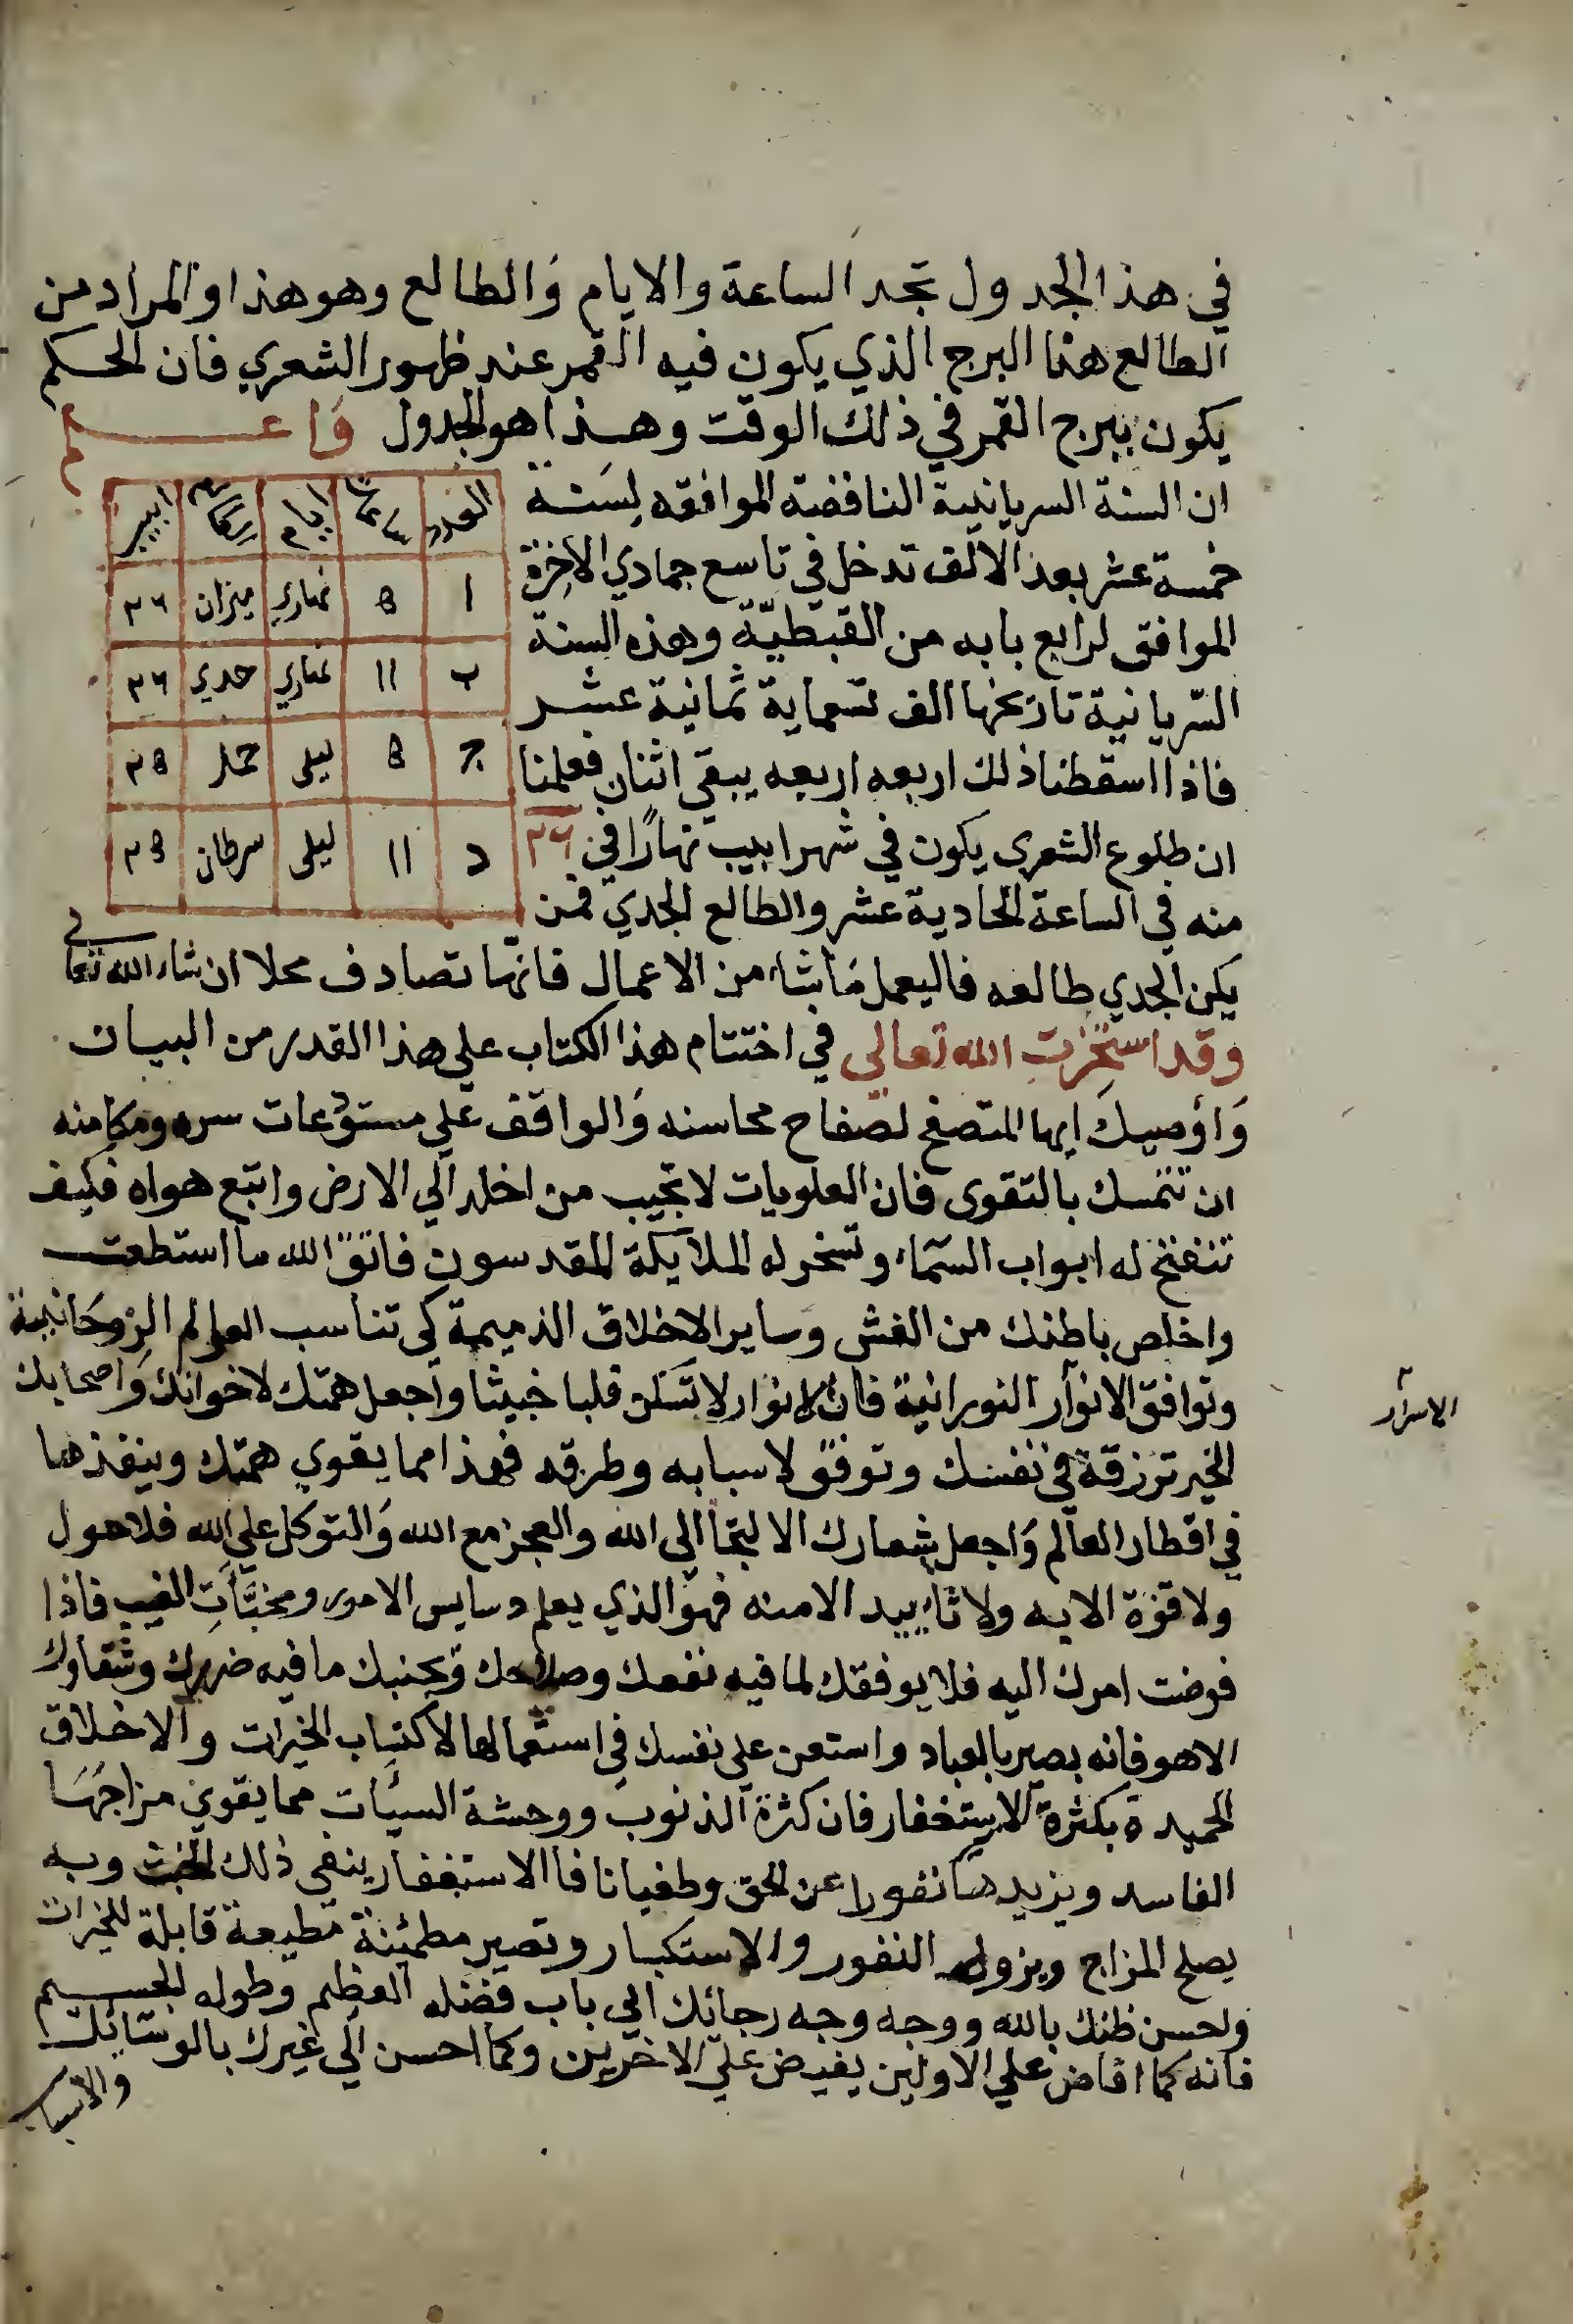 في هذا الجدول تجد الساعة والايام والطالع وهو هذا والمراد من
الطالع هنا البرج الذي يكون فيه القمر عند ظهور الشعري فان الحكم
يكون ببرج القمر في ذلك الوقت وهذا هو الجدول واعلم
ان السنة السريانية الناقصة الموافقه لسنة
خمسة عشر بعد الالف تدخل في تاسع جمادي الاخرة
الموافق لرابع بابه من القبطية وهذه السنة
السريانية تاريخها الف تسعماية ثمانية عشر
فاذا اسقطنا ذلك اربعه اربعه يبقي اثنان فعلمنا
ان طلوع الشعري يكون في شهر ابيب نهارا في ٢٦
منه في الساعة الحادية عشر والطالع الجدي فمن
العدد ساعات ايام ابيب
ا 8 نهاري ميزان ٢٦
ب ١١ نهاري جدي ٢٦
ج 8 ليلي حمل
د ١١ ليلي سرطان
يكن الجدي طالعه فاليعمل ما شاء من الاعمال فانها تصادف محلا ان شاء الله تعالى
وقد استخرت الله تعالى في اختتام هذا الكتاب علي هذا القدر من البيان
واوصيك ايها المتصفح لصفاح محاسنه والواقف علي مستودعات سره ومكامنه
ان تتمسك بالتقوى فان العلويات لا تجيب من اخلد الي الارض واتبع هواه فكيف
تنفتح له ابواب السماء وتسخر له الملايكة المقدسون فاتق الله ما استطعت
واخلص باطنك من الغش وساير الاخلاق الذميمة كي تناسب العوالم الروحانية
وتوافق الانوار النورانية فان الانوار لا تسكن قلبا خبيثا واجعل همتك لاخوانك واصحابك
الاسرار
الخير ترزقه في نفسك وتوفق لاسبابه وطرقه فهذا مما يقوي همتك وينفذها
في اقطار العالم واجعل شعارك الالتجا الى الله والعجز مع الله والتوكل علي الله فلا حول
ولا قوة الا به ولا تاييد الا منه فهو الذي يعلم دسايس الامور ومخبآت الغيب فاذا
فوضت امرك اليه فلا يوفقك لما فيه نفعك وصلاحك ويجنبك ما فيه ضررك وشقاوك
الا هو فانه بصير بالعباد واستعن علي نفسك في استعمالها لاكتساب الخيرات والاخلاق
الحميدة بكثرة الاستغفار فان كثرة الذنوب ووحشة السيئات مما يقوي مزاجها
الفاسد ويزيدها نفورا عن الحق وطغيانا فاالاستغفار ينفي ذلك الخبث وبه
يصلح المزاج ويزول النفور والاستكبار وتصير مطمئنة مطيعة قابلة للخيرات
ولحسن ظنك بالله ووجه وجه رجائك الي باب فضله العظيم وطوله الجسيم
فانه كما افاض علي الاولين يفيض علي الاخرين وكما احسن الي غيرك بالوسائل
والاسباب